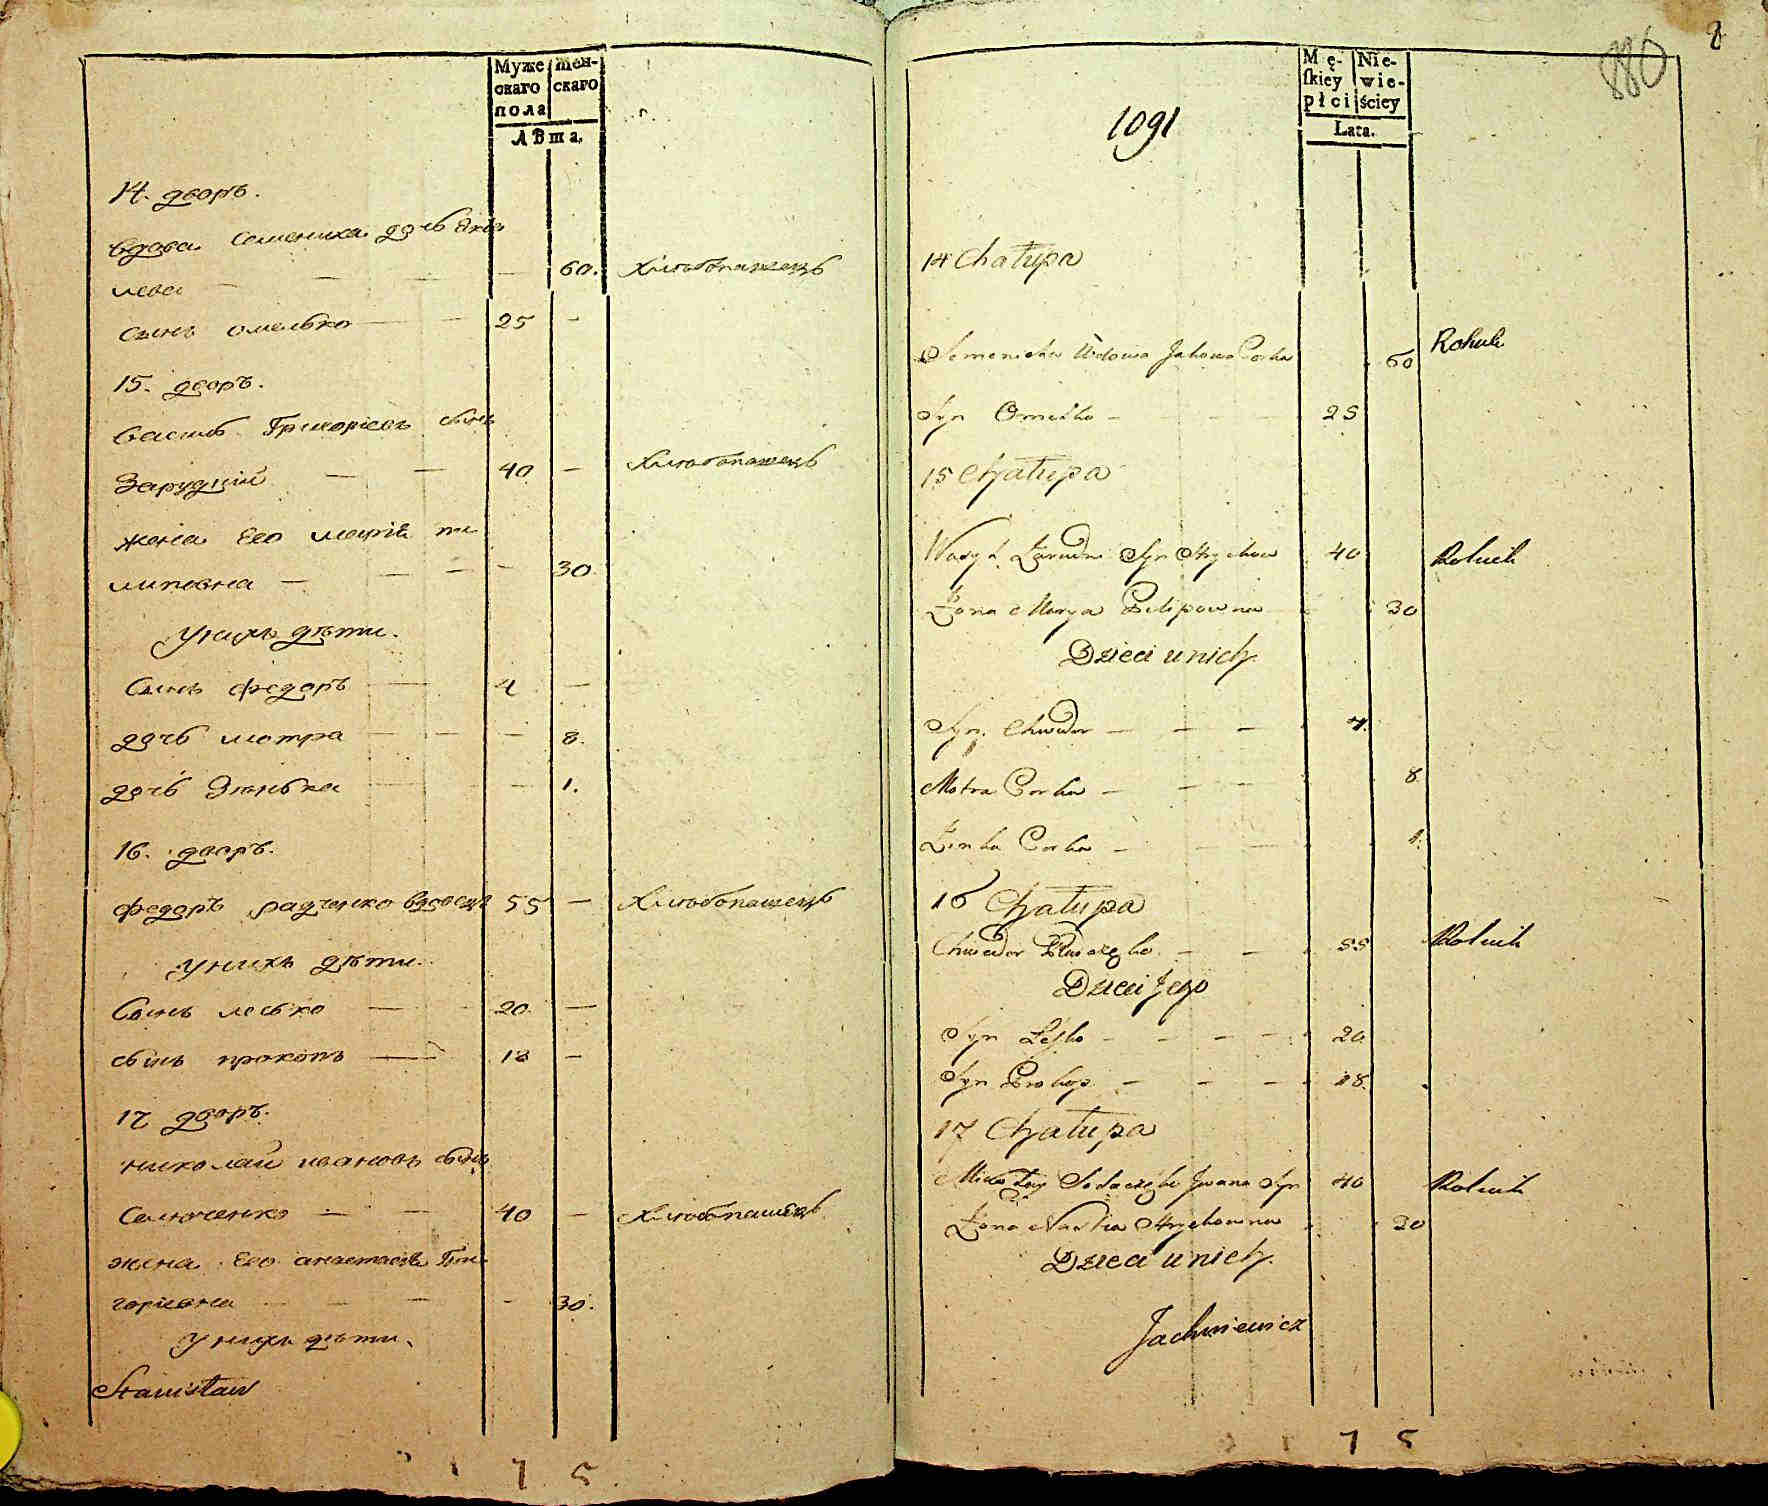 Муже
скаго
пола
жен-
скаго
лѣта.
14. дворъ.
вдова Семениха дочь Яков
лева — — — 60. Хлѣбопашецъ
сынъ омелько — — 25 —
15. дворъ.
василь Григориевъ сынъ
Зарудній — — 40 — Хлѣбопашецъ
жена Его марія пи
липовна — — — — 30
У нихъ дѣти.
Сынъ федоръ — 4 —
дочь мотра — — — 8.
дочь Зѣнька — — 1.
16. дворъ.
федоръ радченко вдовецъ 55 — Хлѣбопашецъ
У нихъ дѣти.
Сынъ лесько — 20 —
сынъ прокопъ — 18 —
17 дворъ.
николай ивановъ сынъ
— — 40 — Хлѣбопашецъ
жена Его анастасія Гри
горіевна — — — — 30.
У нихъ дѣти.
Stanisław
7 5
880
8
1091
Mę-
skiey
płci
Nie-
wie-
ściey
Lata.
14 Chałupa
Semenicha Wdowa Jakowa Corka 60 Rolnik
Syn Omelko — 25
15 Chałupa
Wasyl Zarudni Syn Hrychow 40 Rolnik
Żona Marya Pilipowna 30
Dzieci u nich
Syn Chwedor — — — 4.
Motra Corka — — — 8
Zinka Corka — 1.
16 Chałupa
Chwedor — — 55 Rolnik
Dzieci Jego
Syn Leśko — — — — 20
Syn Prokop — — — 18.
17 Chałupa
Mikołay Iwana Syn 40 Rolnik
Żona Nastia Hrychowna 30
Dzieci u nich.
Jachniewicz
7 5